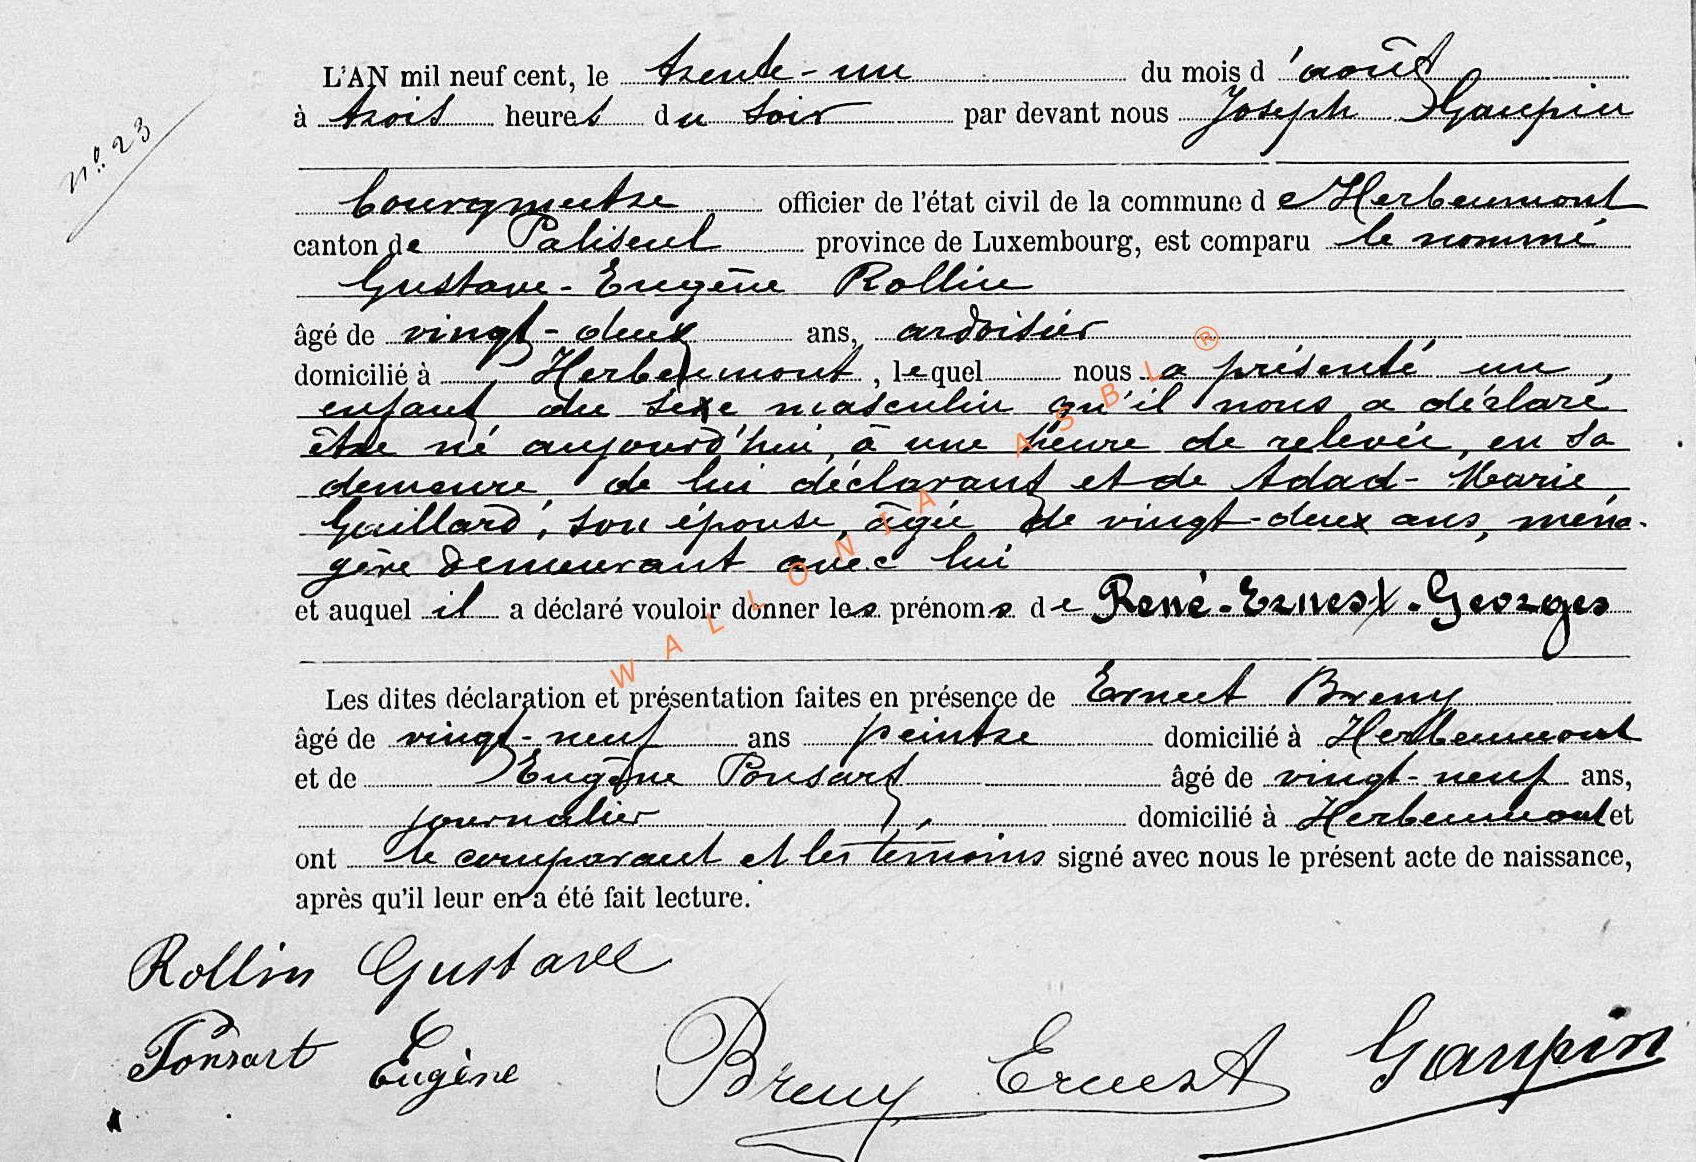 n° 23
L'AN mil neuf cent, le trente-un du mois d'août
à trois heures du soir par devant nous Joseph Gaupin
bourgmestre officier de l'état civil de la commune de Herbeumont
canton de Paliseul province de Luxembourg, est comparu le nommé
Gustave-Eugène Rollin
âgé de vingt-deux ans, ardoisier
domicilié à Herbeumont, lequel nous a présenté un
enfant du sexe masculin qu'il nous a déclaré
être né aujourd'hui, à une heure de relevée, en sa
demeure, de lui déclarant et de Adad-Marie
Gaillard, son épouse, âgée de vingt-deux ans, ména-
gère demeurant avec lui
et auquel il a déclaré vouloir donner les prénoms de René-Ernest-Georges
Les dites déclaration et présentation faites en présence de Ernest Breny
âgé de vingt-neuf ans peintre domicilié à Herbeumont
et de Eugène Ponsart âgé de vingt-neuf ans,
journalier, domicilié à Herbeumont et
ont le comparant et les témoins signé avec nous le présent acte de naissance,
après qu'il leur en a été fait lecture.
WALLONIA ASBL ®
Rollin Gustave
Ponsart Eugène Breny Ernest Gaupin